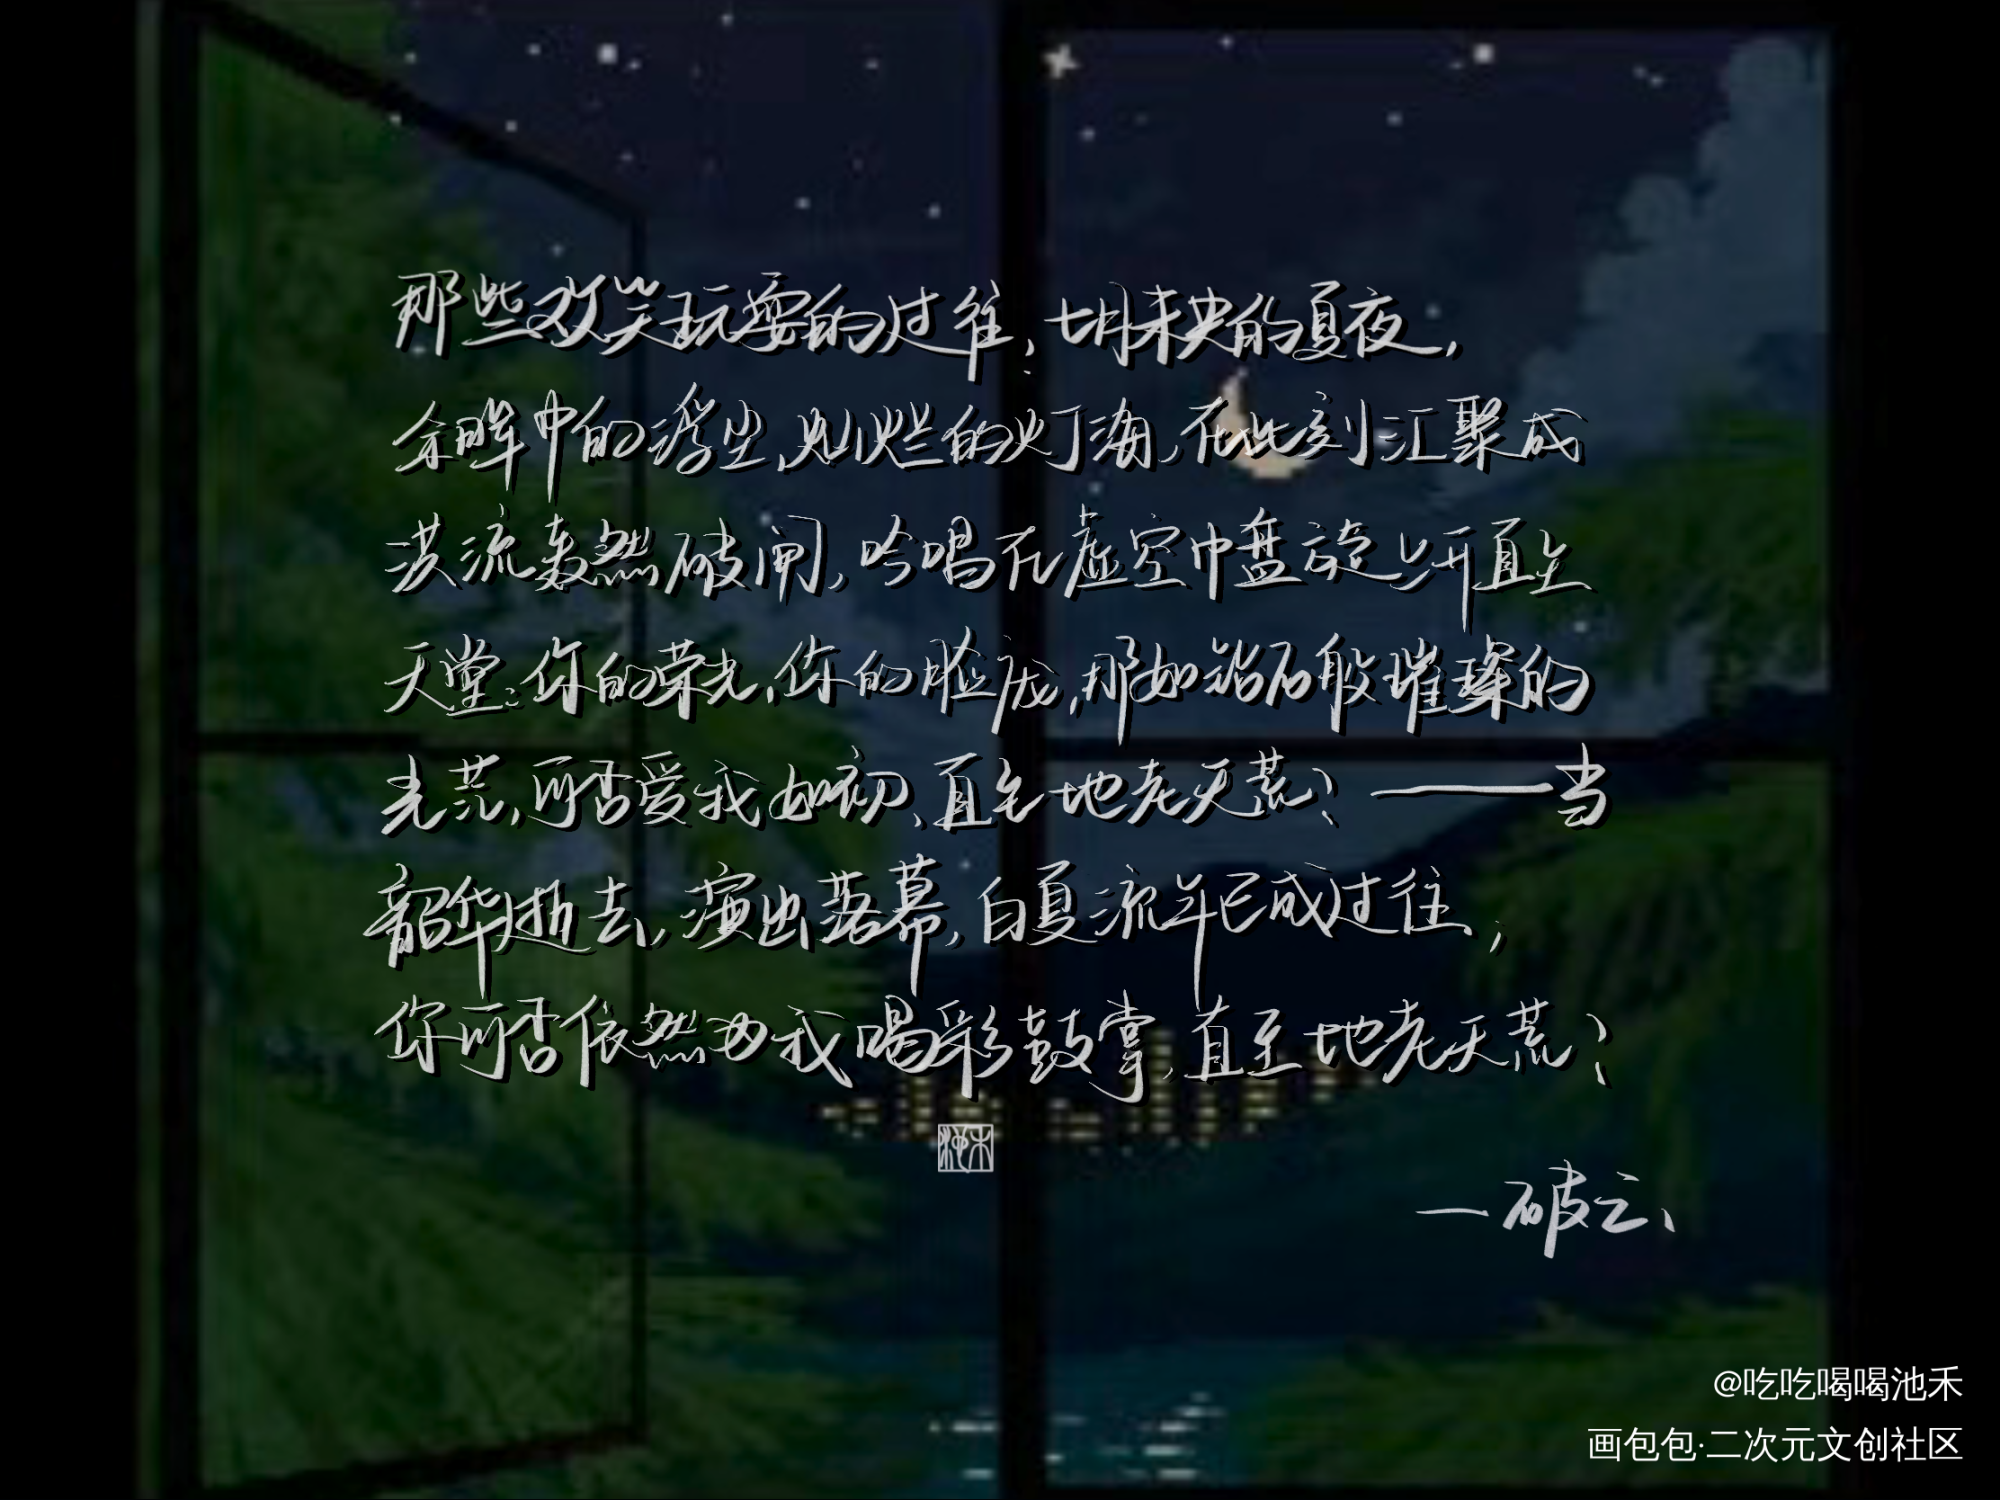 那些欢笑玩耍的过往，七月未央的夏夜，
余晖中的浮尘，灿烂的灯海，在此刻汇聚成
洪流轰然破闸，吟唱在虚空中盘旋上升直至
天堂：你的荣光，你的脸庞，那如钻石般璀璨的
光芒，可否爱我如初、直至地老天荒？——当
韶华逝去，演出落幕，白夏流年已成过往，
你可否依然为我喝彩鼓掌，直至地老天荒？
池禾
—破云、
@吃吃喝喝池禾
画包包·二次元文创社区